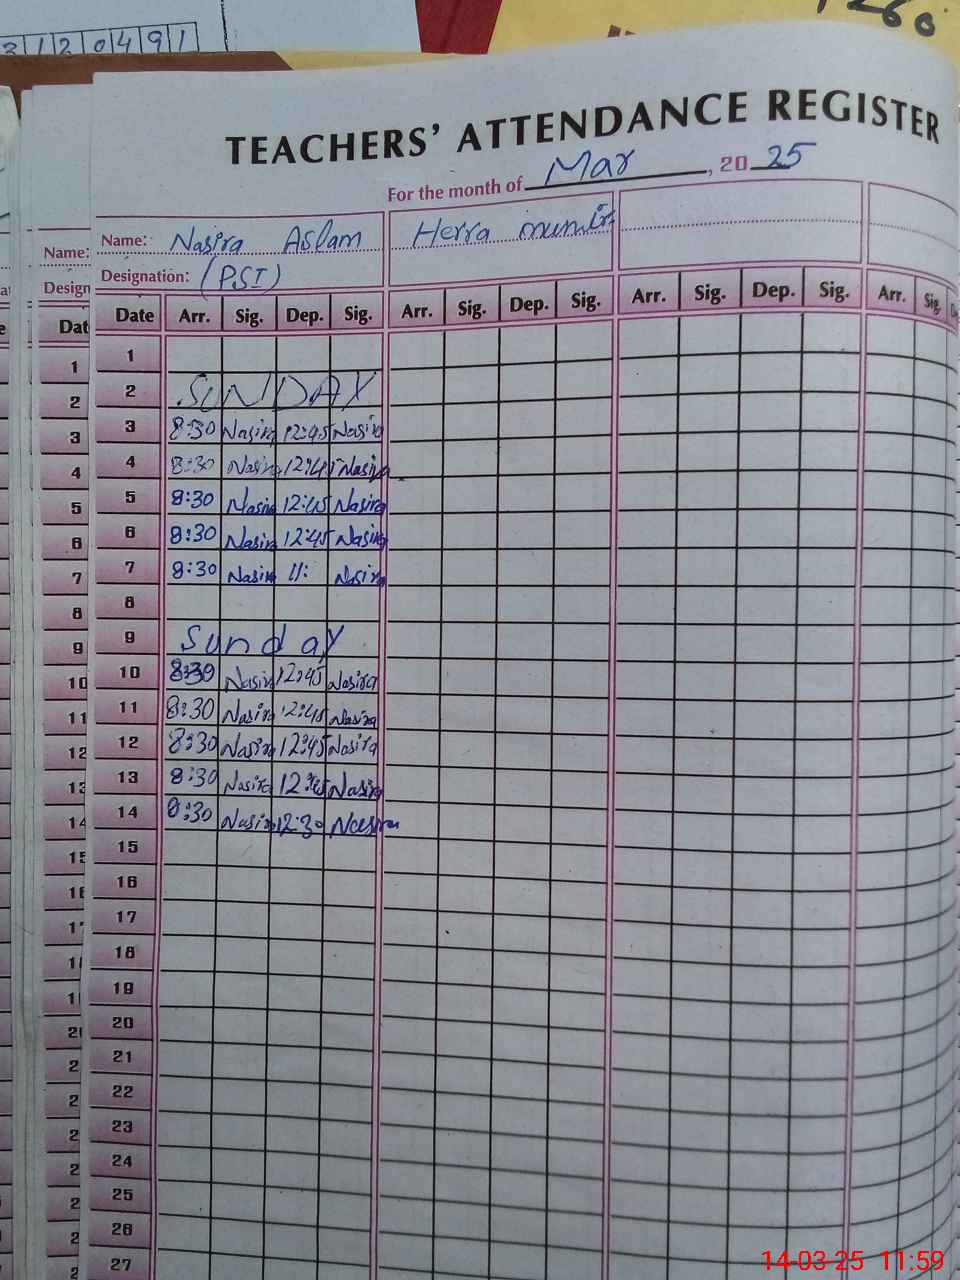 31120491
1260
TEACHERS' ATTENDANCE REGISTER
For the month of Mar, 2025
Name: Nasira Aslam Herra munir
Designation: (PSI)
Date Arr. Sig. Dep. Sig. Arr. Sig. Dep. Sig. Arr. Sig. Dep. Sig. Arr. Sig.
1
2 SUNDAY
3 8:30 Nasira 12:45 Nasira
4 8:30 Nasira 12:45 Nasira
5 8:30 Nasira 12:45 Nasira
6 8:30 Nasira 12:45 Nasira
7 8:30 Nasira 11: Nasira
8
9 Sunday
10 8:30 Nasira 12:45 Nasira
11 8:30 Nasira 12:45 Nasira
12 8:30 Nasira 12:45 Nasira
13 8:30 Nasira 12:45 Nasira
14 8:30 Nasira 12:30 Nasira
15
16
17
18
19
20
21
22
23
24
25
26
27
Name:
Design
Dat
1
2
3
4
5
6
7
8
9
10
11
12
14-03-25 11:59